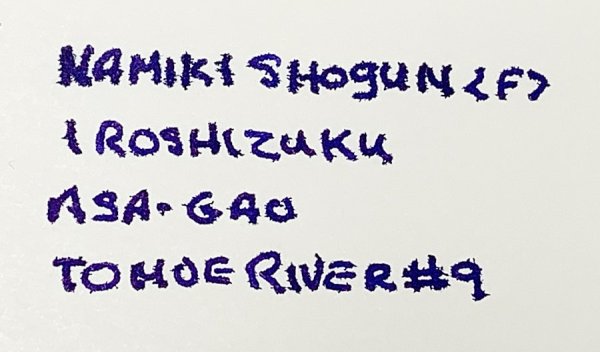 NAMIKI SHOGUN <F>
IROSHIZUKU
ASA-GAO
TOMOE RIVER #9